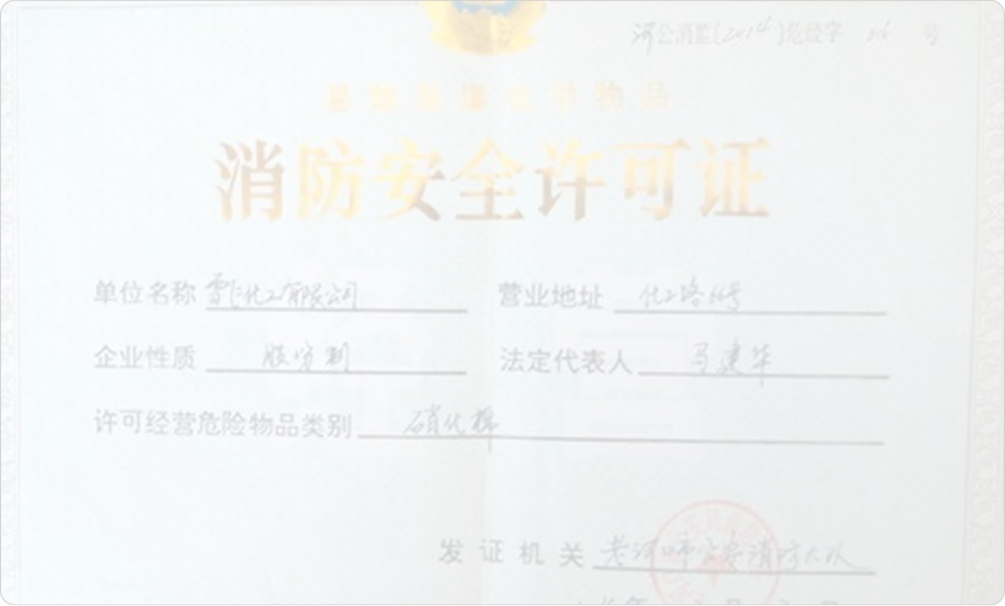 河公消监[2014]危经字 016 号
易燃易爆化学物品
消防安全许可证
单位名称 雪飞化工有限公司 营业地址 化工路66号
企业性质 股份制 法定代表人 马建华
许可经营危险物品类别 硝化棉
发证机关 老河口市公安消防大队